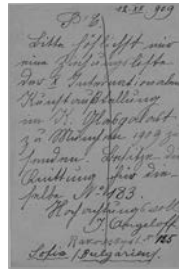 12. XI 909
P. T.
Bitte höflichst mir
eine Ziehungsliste
der X Internationalen
Kunstaußstellung
im K. Glaspalast
zu München 1909 zu
senden. Besitze die
Quittung für die-
selbe No 483.
Hochachtungsvoll
J. Angeloff
125
Sofia, Bulgarien.